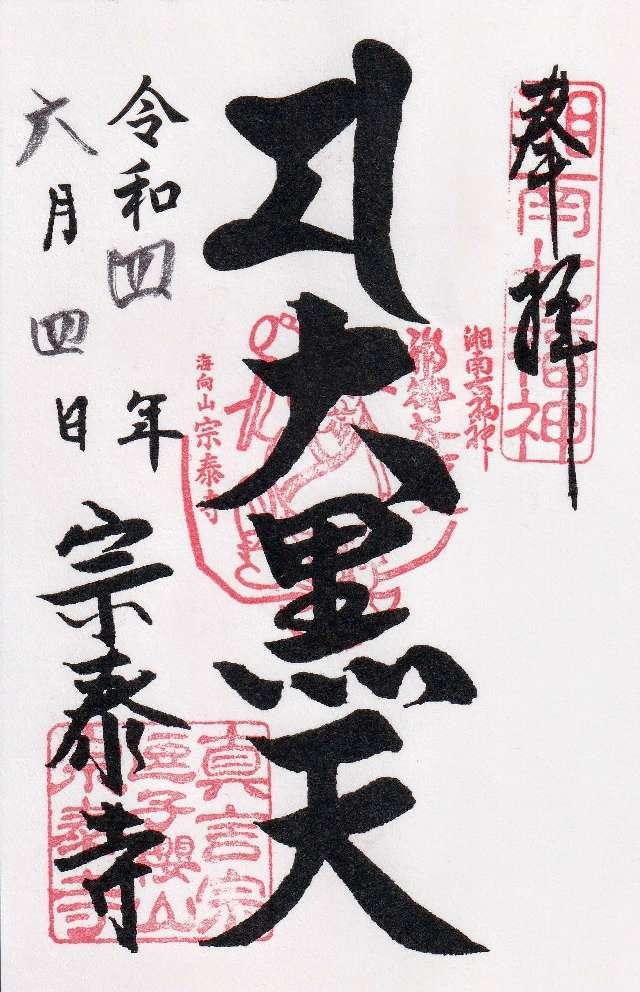 奉拝
湘南七福神
湘南七福神
大黒天
海向山 宗泰寺
令和四年
六月四日
宗泰寺
真言宗